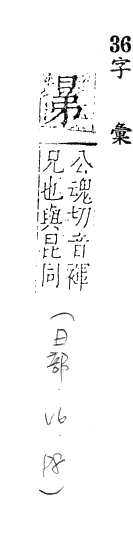 36字彙
晜
公魂切音褌
兄也與昆同
(日部.V6.P8)